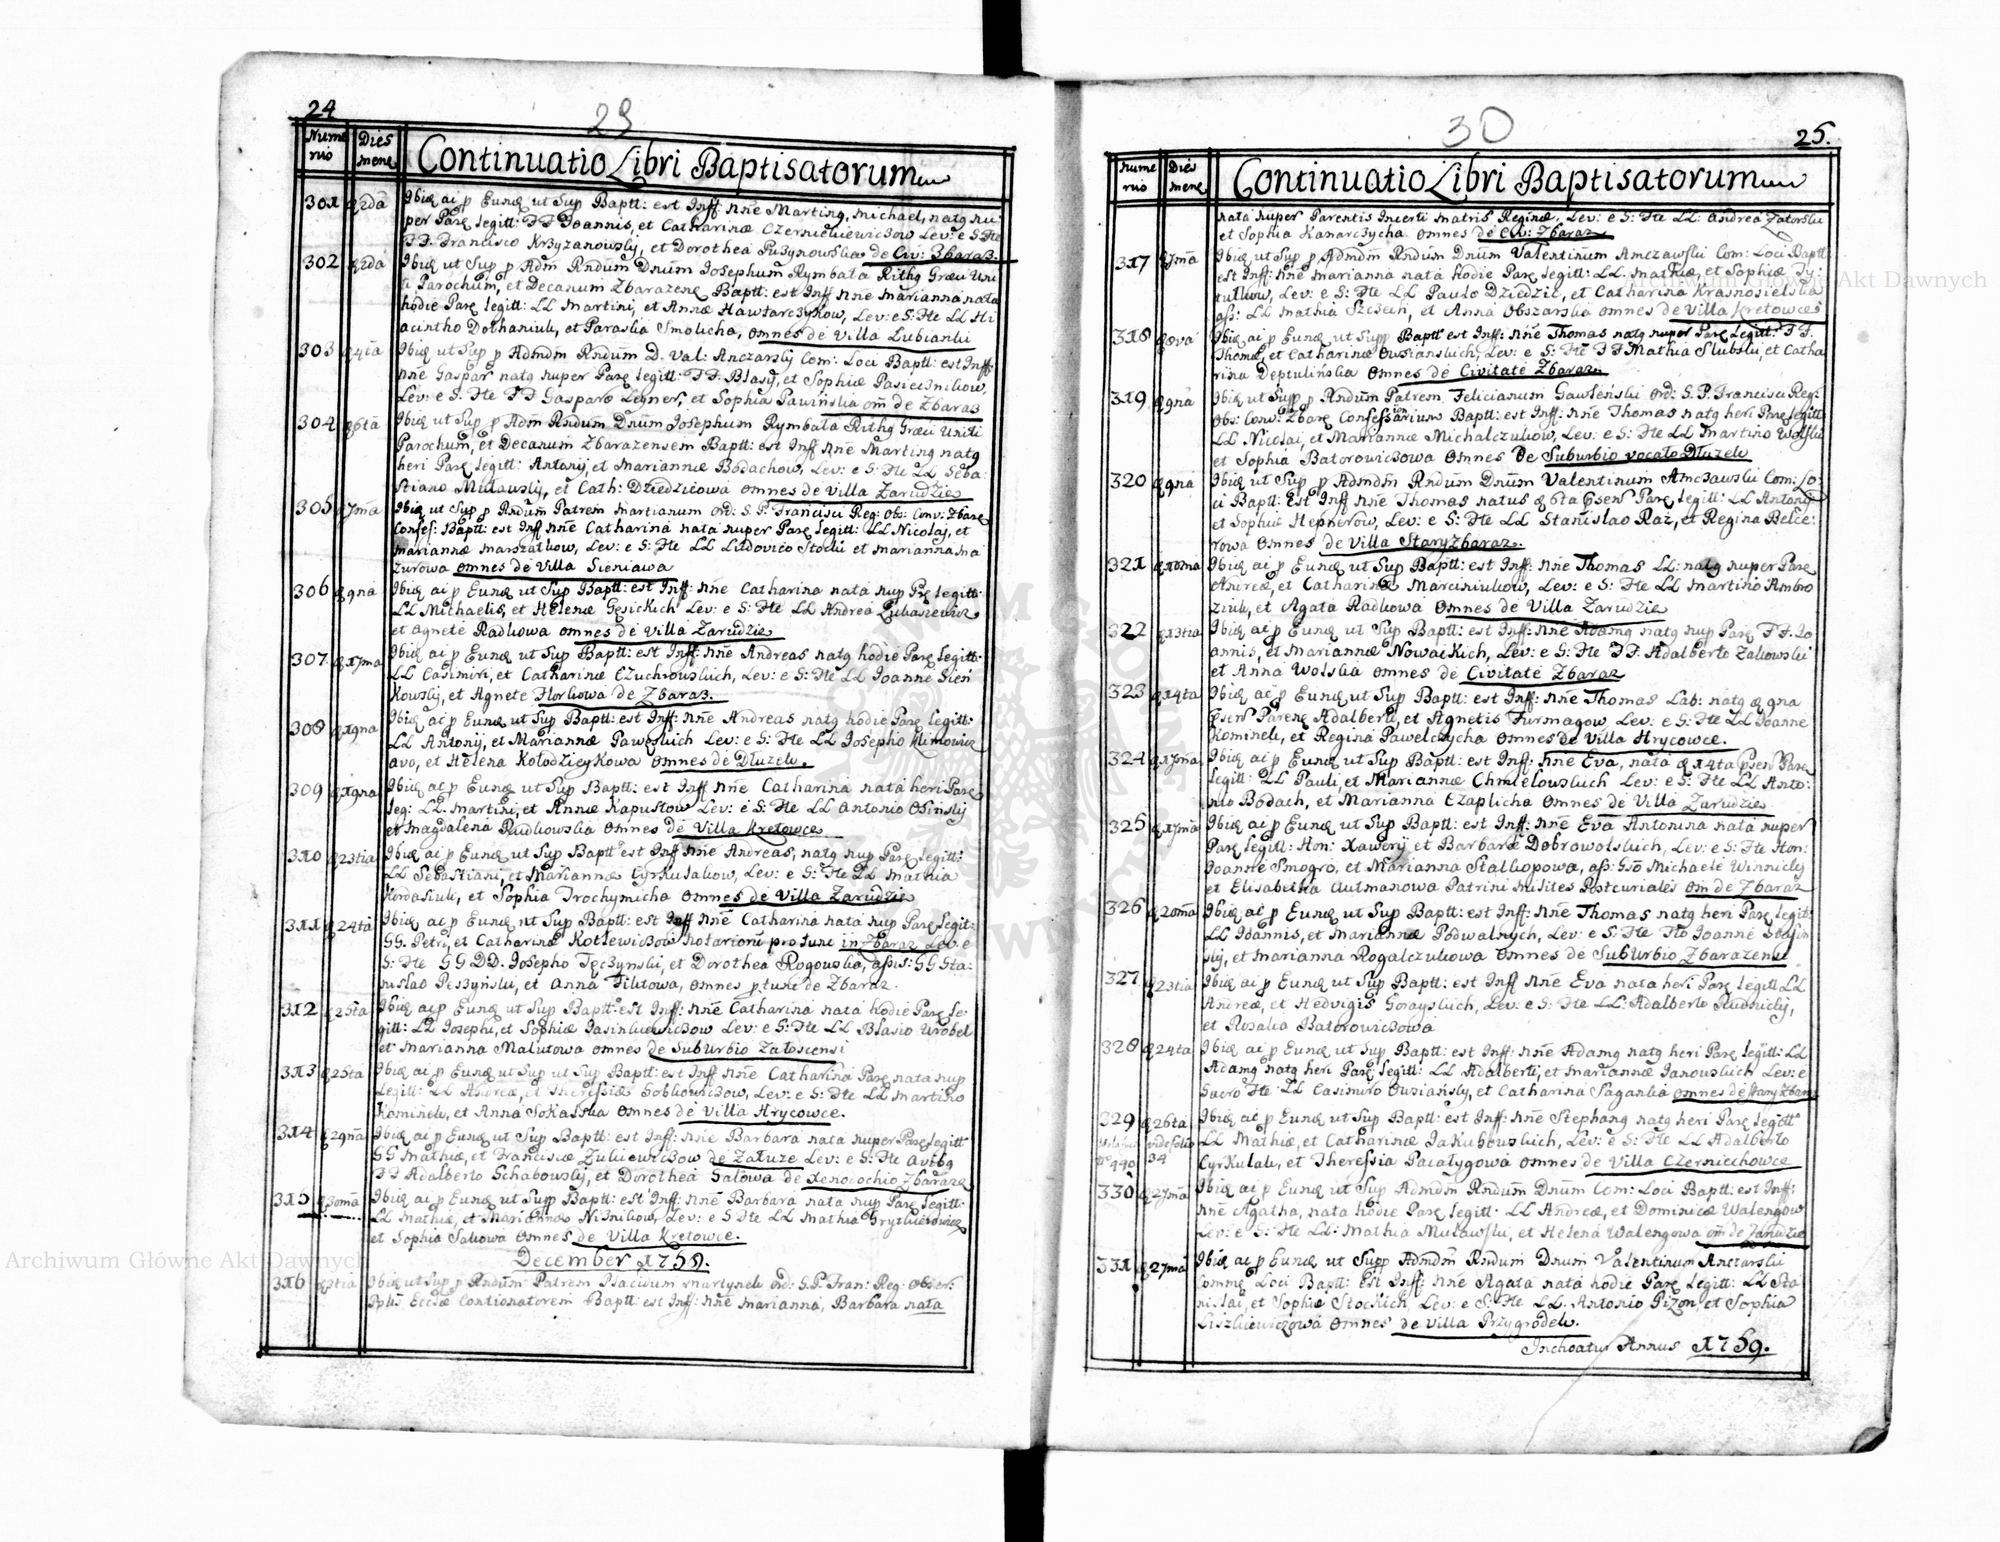 24
29
Nume
rus
Dies
mene
Continuatio Libri Baptisatorum
301 2da Ibid ac p Eund ut Sup Baptt: est Inff Nne Marting, Michael, natg nu
per Par legitt: FF Joannis, et Catharinæ Czerniewiczow Lev: e S: Fte
FF. Francisco Krzyzanowsky, et Dorothea Puzynowska de Civ: Zbaraz.
302 2da Ibid ut Sup p Adm Rndum Dnum Josephum Rymbala Rithg Græci Uni
ti Parochum, et Decanum Zbarazene Baptt: est Inff Nne Marianna nata
hodie Par legitt: LL Martini, et Annæ Hawtarczykow, Lev: e S: Fte LL Hi
acintho Dolhaniuk, et Paraska Smolicha, omnes de Villa Lubianki
303 4ta Ibid ut Sup p Admdm Rndum D. Val: Anczarsky Com: Loci Baptt: est Inff:
Nne Gaspar natg nuper Par legitt: FF. Blasy, et Sophiæ Pasiecznikow,
Lev: e S: Fte FF Gasparo Legner, et Sophia Pawinska om de Zbaraz
304 6ta Ibid ut Sup p Adm Rndum Dnum Josephum Rymbala Rithg Græci Uniti
Parochum, et Decanum Zbarazensem Baptt: est Inff Nne Marting natg
heri Par legitt: Antonij, et Mariannæ Bodachow, Lev: e S: Fte LL Seba:
stiano Mulawsky, et Cath: Dziedzicowa omnes de Villa Zarudzie
305 7ma Ibid ut Sup p Rndum Patrem Martianum ord: S. P. Francisci Reg: Obs: Conv: Zbare
Confess: Baptt: est Inff Nne Catharina nata nuper Par legitt: LL Nicolaj, et
Mariannæ Marszalkow, Lev: e S: Fte LL Ludovico Stocki et Marianna Ma
zurowa omnes de Villa Sieniawa
306 9na Ibid ac p Eund ut Sup Baptt: est Inff: Nne Catharina nata nup Par legitt:
LL Michaelis, et Helenæ Gesickich Lev: e S: Fte LL Andrea Lukaszewicz
et Agnete Radkowa omnes de Villa Zarudzie
307 17ma Ibid ac p Eund ut Sup Baptt: est Inff: Nne Andreas natg hodie Par legitt:
LL Casimiri, et Catharinæ Czuchrowskich, Lev: e S: Fte LL Joanne Sien
kowsky, et Agnete Horkowa de Zbaraz.
308 19na Ibid ac p Eund ut Sup Baptt: est Inff: Nne Andreas natg hodie Par legitt:
LL Antonij, et Mariannæ Paweskich Lev: e S: Fte LL Josepho Klimowicz
avo, et Helena Kolodzieykowa omnes de Dluzek.
309 19na Ibid ac p Eund ut Sup Baptt: est Inff Nne Catharina nata heri Par
leg: LL. Martini, et Annæ Kapustow Lev: e S: Fte LL Antonio Osinsky
et Magdalena Rudkowska omnes de Villa Kretowce
310 23tia Ibid ac p Eund ut Sup Baptt est Inff Nne Andreas, natg nup Par legitt:
LL Sebastiani, et Mariannæ Cyrkulakow, Lev: e S: Fte LL Mathia
Kordasiuk, et Sophia Trochymicha omnes de Villa Zarudzie
311 24ta Ibid ac p Eund ut Sup Baptt: est Inff Nne Catharina nata nup Par legit:
GG. Petri, et Catharinæ Kotlewiczow Notariorú pro tunc in Zbaraz Lev: e
S: Fte GG DD. Josepho Teczynski, et Dorothea Rogowska, assis: GG Sta:
nislao Peszynski, et Anna Filitowa, omnes p tunc de Zbaraz.
312 25ta Ibid ac p Eund ut Sup Baptt: est Inff: Nne Catharina nata hodie Par le:
gitt: LL Josephi, et Sophiæ Jasinkiewiczow Lev: e S: Fte LL Blasio Wrobel
et Marianna Malutowa omnes de Suburbio Zaloscensi
313 25ta Ibid ac p Eund ut Sup ut Sup Baptt: est Inff Nne Catharina Par nata nup
Legitt: LL Andreæ, et Theressiæ Sobkowiczow, Lev: e S: Fte LL Martino
Kominek, et Anna Sokalska omnes de Villa Hrycowce.
314 29na Ibid ac p Eund ut Sup Baptt: est Inff: Nne Barbara nata nuper Par legitt
GG Mathiæ, et Franciscæ Zukiewiczow de Zaluze Lev: e S: Fte
FF Adalberto Schabowsky, et Dorothea Salowa de Xenodochio Zbaraze
315 30ma Ibid ac p Eund ut Supp Baptt: est Inff: Nne Barbara nata nup Par legitt:
LL Mathiæ, et Mariannæ Niznikow, Lev: e S Fte LL Mathia Hrytkiewicz
et Sophia Salkowa omnes de Villa Kretowce.
December 1758.
316 3tia Ibid ut Sup p Rndum Patrem Placidum Martynek ord: S. P. Fran: Reg: Obser:
Pptis Eccsæ Contionatorem Baptt: est Inff: Nne Marianna, Barbara nata
30
25.
Nume
rus
Dies
mene
Continuatio Libri Baptisatorum
nata nuper Parentis Incerti Matris Reginæ. Lev: e S: Fte LL: Andrea Zatorski
et Sophia Kanarczycha omnes de Civ: Zbaraz
317 7ma Ibid ut Sup p Admdm Rndum Dnum Valentinum Amczawski Com: Loci Baptt:
est Inff: Nne Marianna nata hodie Par legitt: LL. Mathiæ, et Sophiæ Ty:
tulkow, Lev: e S: Fte LL Paulo Dziedzic, et Catharina Krasnosielska
ass: LL Mathia Szczecin, et Anna Obszarska omnes de Villa Kretowce
318 8va Ibid ac p Eund ut Supp Baptt est Inff: Nne Thomas natg nuper Par Legitt: FF.
Thomæ, et Catharinæ Owsianskich, Lev: e S: Fte FF Mathia Slubski, et Catha
rina Deptulinska omnes de Civitate Zbaraz.
319 9na Ibid ut Supp p Rndum Patrem Felicianum Gawlenski ord: S. P. Francisci Reg:
Obs: Conv: Zbare Confessarium Baptt: est Inff: Nne Thomas natg heri Par legitt
LL Nicolai, et Mariannæ Michalczukow, Lev: e S: Fte LL Martino Wolski
et Sophia Batorowiczowa omnes de Suburbio vocato Dluzek
320 9na Ibid ut Sup p Admdm Rndum Dnum Valentinum Amczawski Com: Lo:
ci Baptt: Est Inff Nne Thomas natus 6ta psen Par legitt: LL Antonij
et Sophiæ Hepnerow, Lev: e S: Fte LL Stanislao Raz, et Regina Belce:
rowa omnes de Villa Staryzbaraz.
321 10ma Ibid ac p Eund ut Sup Baptt: est Inff: Nne Thomas LL: natg nuper Par
Andreæ, et Catharinæ Marciniukow, Lev: e S: Fte LL Martino Ambro
ziuk, et Agata Radkowa omnes de Villa Zarudzie
322 13tia Ibid ac p Eund ut Sup Baptt: est Inff: Nne Adamg natg nup Par FF. Jo
annis, et Mariannæ Nowackich, Lev: e S: Fte FF. Adalberto Zalkowski
et Anna Wolska omnes de Civitate Zbaraz
323 14ta Ibid ac p Eund ut Sup Baptt: est Inff: Nne Thomas Lab: natg 9na
psen Parene Adalberti, et Agnetis Furmagow, Lev: e S: Fte LL Joanne
Kominek, et Regina Pawelczycha omnes de Villa Hrycowce.
324 17ma Ibid ac p Eund ut Sup Baptt: est Inff: Nne Eva, nata 14ta psen Par
legitt: LL Pauli, et Mariannæ Chmielowskich Lev: e S: Fte LL Anto:
nio Bodach, et Marianna Czaplicha omnes de Villa Zarudzie
325 17ma Ibid ac p Eund ut Sup Baptt: est Inff: Nne Eva Antonina nata nuper
Par legitt: Hon: Xawerij et Barbaræ Dobrowolskich, Lev: e S: Fte Hon:
Joanne Smogro, et Marianna Stalkopowa, ass: Gso Michaele Winnicky
et Elisabetha Autmanowa Patrini Milites Postcuriales om de Zbaraz
326 20ma Ibid ac p Eund ut Sup Baptt: est Inff: Nne Thomas natg heri Par legit:
LL Joannis, et Mariannæ Podwalnych, Lev: e S: Fte Joanne Stasin
sky, et Marianna Rogalczukowa omnes de Suburbio Zbarazensi
327 23tia Ibid ac p Eund ut Sup Baptt: est Inff Nne Eva nata heri Par legitt LL
Andreæ, et Hedvigis Gorayskich, Lev: e S: Fte LL: Adalberto Rudnicky,
et Rosalia Batorowiczowa
328 24ta Ibid ac p Eund ut Sup Baptt: est Inff: Nne Adamg natg heri Par legitt: LL
Adamg natg heri Par legitt: LL Adalberti, et Mariannæ Janowskich Lev: e
Sacro Fte LL Casimiro Owsiansky, et Catharina Saganka omnes de Staryzbaraz
329 26ta Ibid ac p Eund ut Sup Baptt: est Inff: Nne Stephang natg heri Par legitt
vide folio LL Mathiæ, et Catharinæ Jakubowskich, Lev: e S: Fte LL Adalberto
440 34 Cyrkulak, et Theressia Pacalygowa omnes de Villa Czerniechowce
330 27ma Ibid ac p Eund ut Sup Admdm Rndum Dnum Com: Loci Baptt: est Inff:
Nne Agatha, nata hodie Par legitt: LL Andreæ, et Dominicæ Walengow
Lev: e S: Fte LL: Mathia Mulawski, et Helena Walengowa om de Zarudzie
331 27ma Ibid ac p Eund ut Supp Admdm Rndum Dnum Valentinum Anczarski
Comme Loci Baptt: Est Inff: Nne Agata nata hodie Par legitt: LL Sta
nislai, et Sophiæ Stockich, Lev: e S: Fte LL. Antonio Pizon, et Sophia
Liszkiewiczowa omnes de Villa Przygrodek.
Inchoatur Annus 1759.
Archiwum Główne Akt Dawnych
Archiwum Główne Akt Dawnych